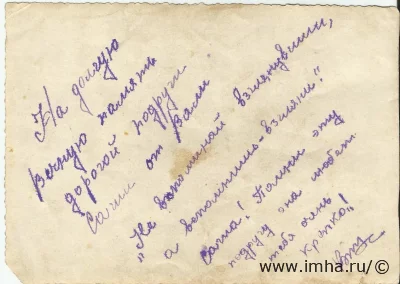 На долгую
вечную память
дорогой подруги
Саши от Вали.
"Не вспоминай взглянувши,
а вспомнишь - взгляни!"
Саша! Помни эту
подругу она любит
тебя очень
крепко!
www.imha.ru/©